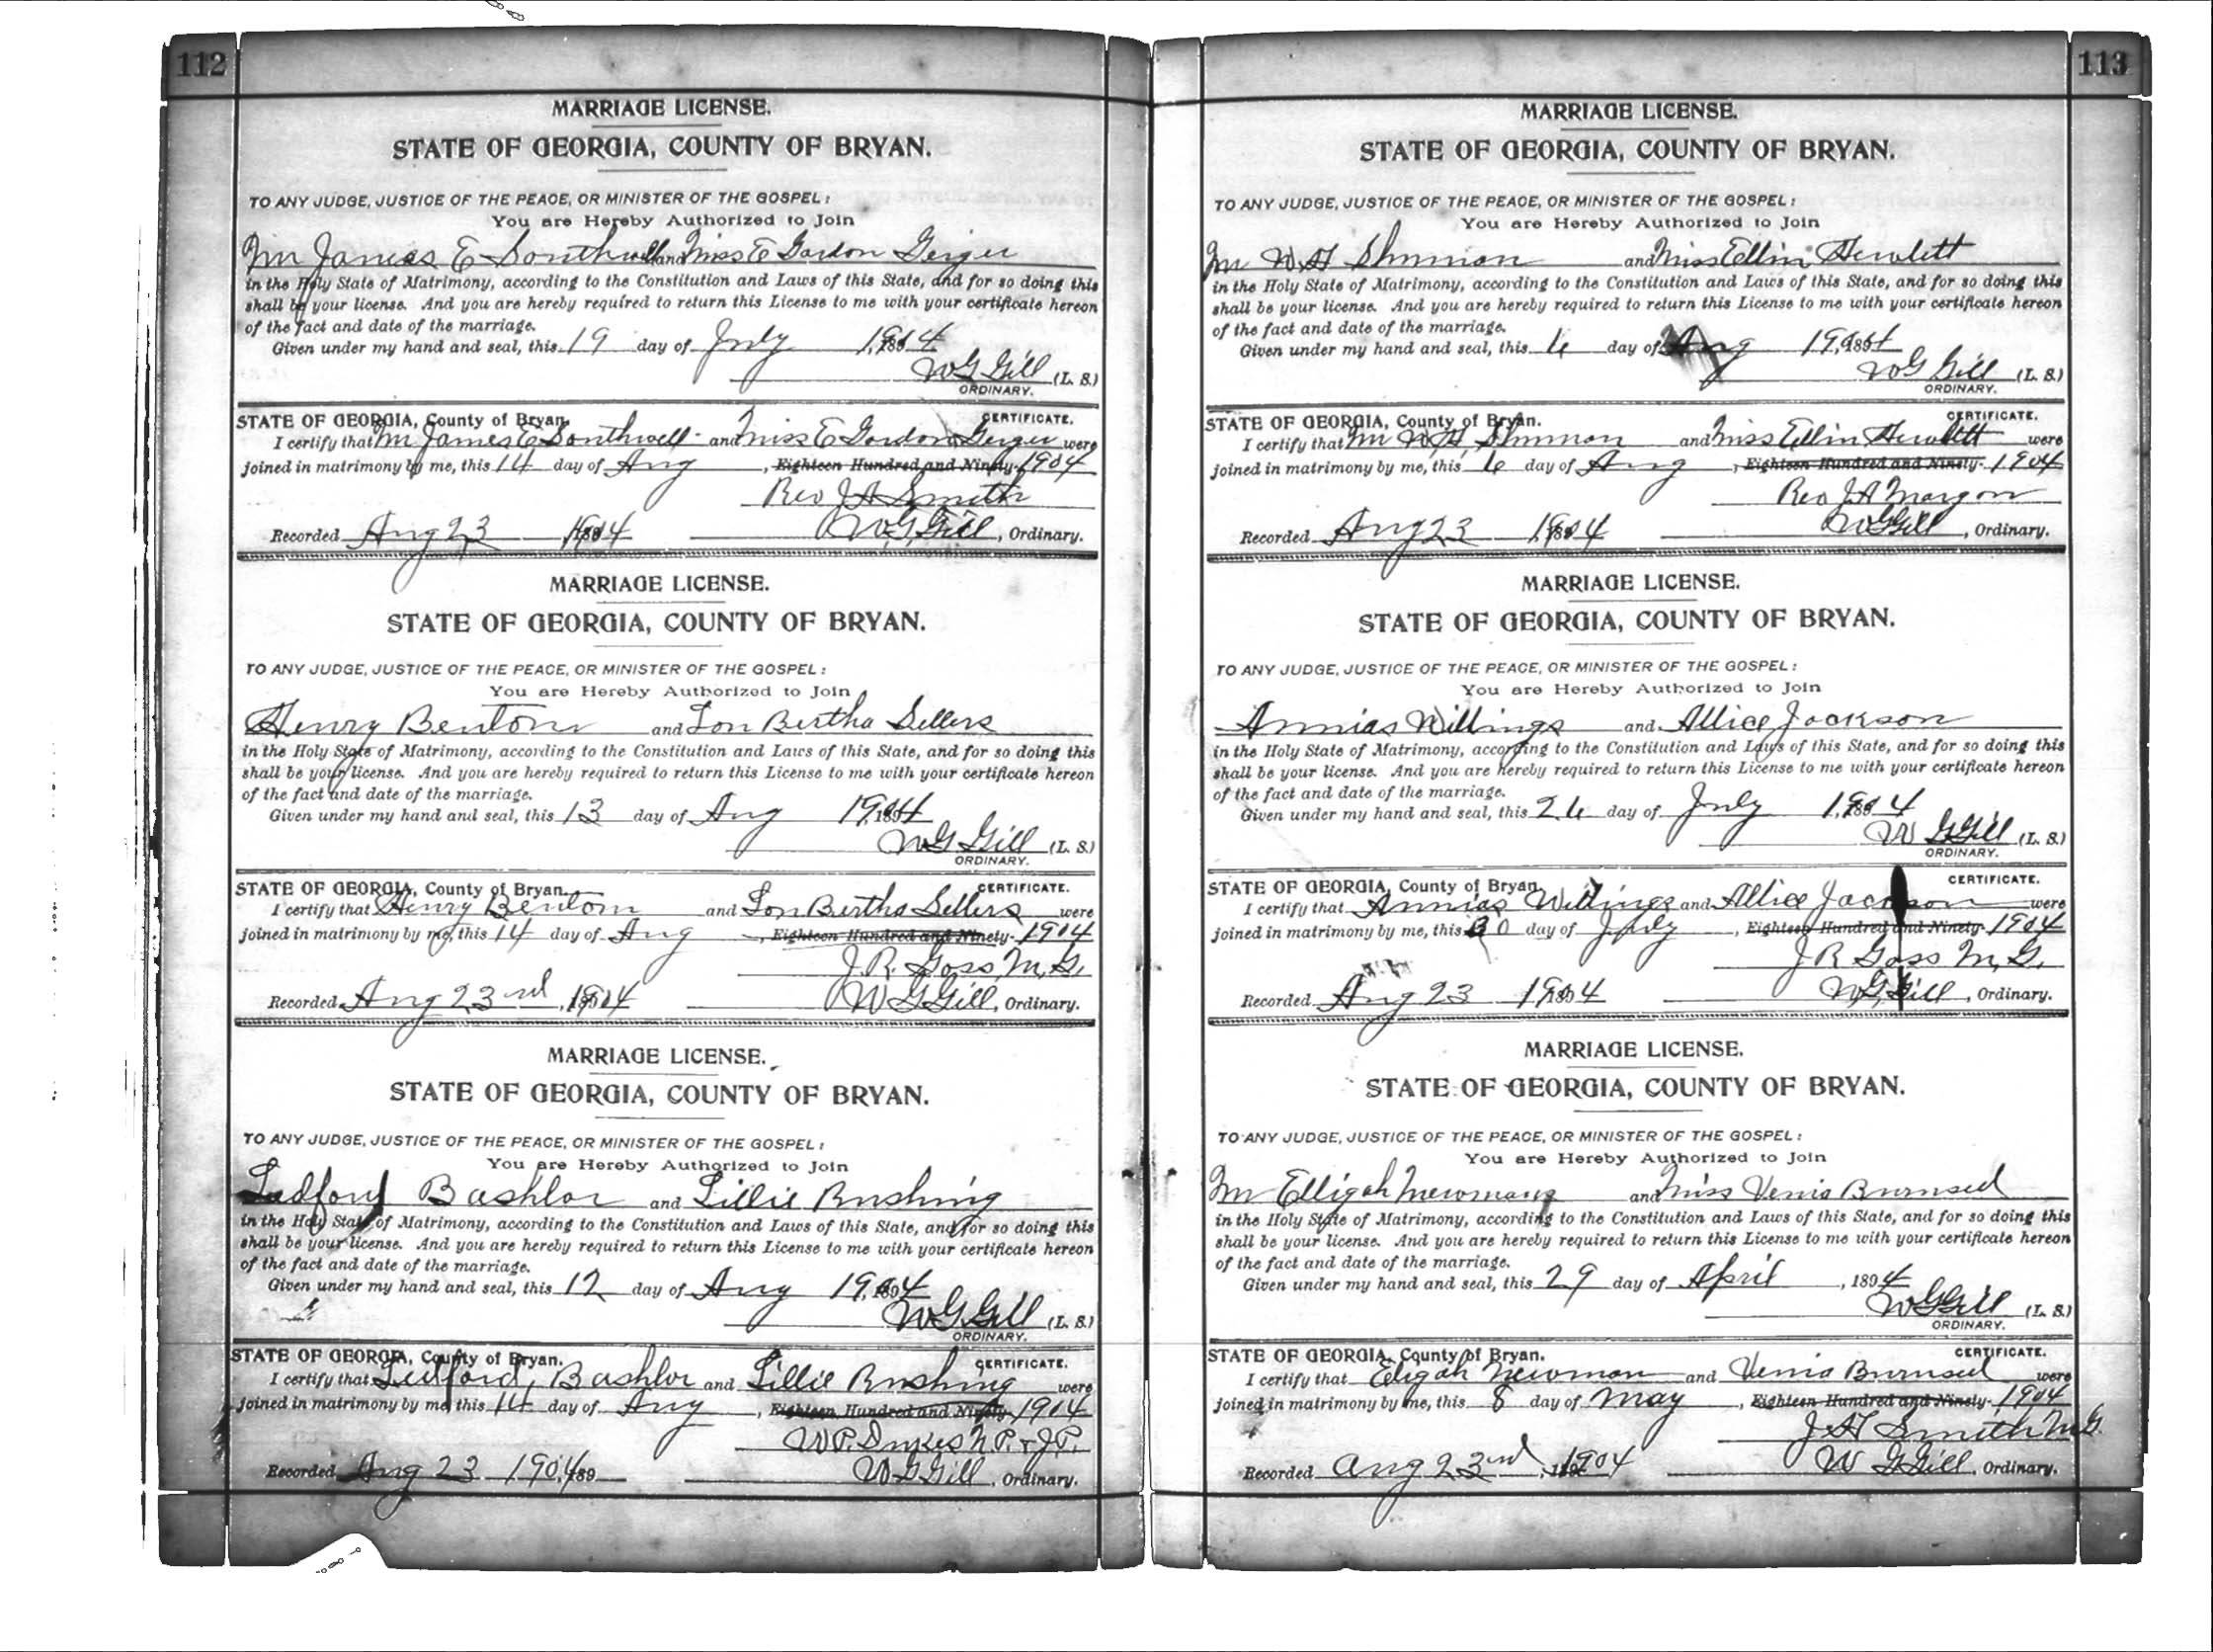 112
MARRIAGE LICENSE.
STATE OF GEORGIA, COUNTY OF BRYAN.
TO ANY JUDGE, JUSTICE OF THE PEACE, OR MINISTER OF THE GOSPEL:
You are Hereby Authorized to Join
Mr James E Southwell and Miss E Gordon Geiger
in the Holy State of Matrimony, according to the Constitution and Laws of this State, and for so doing this
shall be your license. And you are hereby required to return this License to me with your certificate hereon
of the fact and date of the marriage.
Given under my hand and seal, this 19 day of July 1904
W G Gill (L. S.)
ORDINARY.
STATE OF GEORGIA, County of Bryan. CERTIFICATE.
I certify that Mr James E Southwell and Miss E Gordon Geiger were
joined in matrimony by me, this 14 day of Aug, Eighteen Hundred and Ninety- 1904
Rev J A Smith
Recorded Aug 23 1904 W. G. Gill, Ordinary.
MARRIAGE LICENSE.
STATE OF GEORGIA, COUNTY OF BRYAN.
TO ANY JUDGE, JUSTICE OF THE PEACE, OR MINISTER OF THE GOSPEL:
You are Hereby Authorized to Join
Henry Benton and Lon Bertha Sellers
in the Holy State of Matrimony, according to the Constitution and Laws of this State, and for so doing this
shall be your license. And you are hereby required to return this License to me with your certificate hereon
of the fact and date of the marriage.
Given under my hand and seal, this 13 day of Aug 1904
W G Gill (L. S.)
ORDINARY.
STATE OF GEORGIA, County of Bryan. CERTIFICATE.
I certify that Henry Benton and Lon Bertha Sellers were
joined in matrimony by me, this 14 day of Aug, Eighteen Hundred and Ninety- 1904
J. R. Goss, M. G.
Recorded Aug 23rd, 1904 W G Gill, Ordinary.
MARRIAGE LICENSE.
STATE OF GEORGIA, COUNTY OF BRYAN.
TO ANY JUDGE, JUSTICE OF THE PEACE, OR MINISTER OF THE GOSPEL:
You are Hereby Authorized to Join
Ledford Bashlor and Lillie Rushing
in the Holy State of Matrimony, according to the Constitution and Laws of this State, and for so doing this
shall be your license. And you are hereby required to return this License to me with your certificate hereon
of the fact and date of the marriage.
Given under my hand and seal, this 12 day of Aug 1904
W G Gill (L. S.)
ORDINARY.
STATE OF GEORGIA, County of Bryan. CERTIFICATE.
I certify that Ledford Bashlor and Lillie Rushing were
joined in matrimony by me, this 14 day of Aug, Eighteen Hundred and Ninety- 1904
W P. Dukes N. P. & J P.
Recorded Aug 23 1904, 189 W G Gill, Ordinary.
113
MARRIAGE LICENSE.
STATE OF GEORGIA, COUNTY OF BRYAN.
TO ANY JUDGE, JUSTICE OF THE PEACE, OR MINISTER OF THE GOSPEL:
You are Hereby Authorized to Join
Mr W. H Shuman and Miss Ellin Hewlett
in the Holy State of Matrimony, according to the Constitution and Laws of this State, and for so doing this
shall be your license. And you are hereby required to return this License to me with your certificate hereon
of the fact and date of the marriage.
Given under my hand and seal, this 6 day of Aug 1904
W G Gill (L. S.)
ORDINARY.
STATE OF GEORGIA, County of Bryan. CERTIFICATE.
I certify that Mr W H, Shuman and Miss Ellin Hewlett were
joined in matrimony by me, this 6 day of Aug, Eighteen Hundred and Ninety- 1904
Rev J A Morgan
Recorded Aug 23 1904 W G Gill, Ordinary.
MARRIAGE LICENSE.
STATE OF GEORGIA, COUNTY OF BRYAN.
TO ANY JUDGE, JUSTICE OF THE PEACE, OR MINISTER OF THE GOSPEL:
You are Hereby Authorized to Join
Annias Willings and Allice Jackson
in the Holy State of Matrimony, according to the Constitution and Laws of this State, and for so doing this
shall be your license. And you are hereby required to return this License to me with your certificate hereon
of the fact and date of the marriage.
Given under my hand and seal, this 26 day of July 1904
W G Gill (L. S.)
ORDINARY.
STATE OF GEORGIA, County of Bryan. CERTIFICATE.
I certify that Annias Willings and Allice Jackson were
joined in matrimony by me, this 30 day of July, Eighteen Hundred and Ninety- 1904
J R Goss M, G.
Recorded Aug 23 1904 W. G, Gill, Ordinary.
MARRIAGE LICENSE.
STATE OF GEORGIA, COUNTY OF BRYAN.
TO ANY JUDGE, JUSTICE OF THE PEACE, OR MINISTER OF THE GOSPEL:
You are Hereby Authorized to Join
Mr Elligah Newmans and Miss Venia Burnsed
in the Holy State of Matrimony, according to the Constitution and Laws of this State, and for so doing this
shall be your license. And you are hereby required to return this License to me with your certificate hereon
of the fact and date of the marriage.
Given under my hand and seal, this 29 day of April, 1894
W G Gill (L. S.)
ORDINARY.
STATE OF GEORGIA, County of Bryan. CERTIFICATE.
I certify that Eligah Newman and Venia Burnsed were
joined in matrimony by me, this 8 day of May, Eighteen Hundred and Ninety- 1904
J. A Smith M G.
Recorded Aug 23rd, 1904 W G Gill, Ordinary.